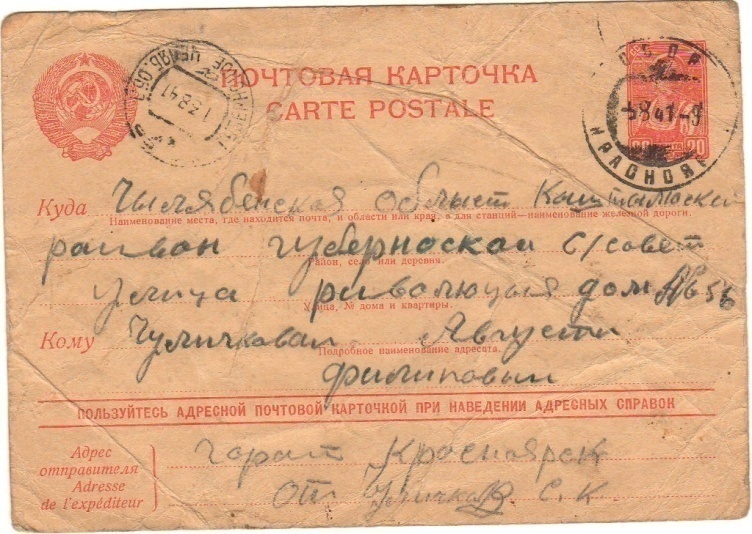 ПОЧТОВАЯ КАРТОЧКА
CARTE POSTALE
20
5 8 41-9
12 8 41
КРАСНОЯР
Куда Чилябенская область
Наименование места, где находится почта, и области или края, а для станций—наименование железной дороги.
райвон губернаская с/совет
Район, село или деревня.
улица риволюцыя дом №656
Улица, № дома и квартиры.
Кому Августи
Подробное наименование адресата.
филиповни
ПОЛЬЗУЙТЕСЬ АДРЕСНОЙ ПОЧТОВОЙ КАРТОЧКОЙ ПРИ НАВЕДЕНИИ АДРЕСНЫХ СПРАВОК
Адрес отправителя
Adresse de l'expéditeur
гарат Красноярск
От С. К